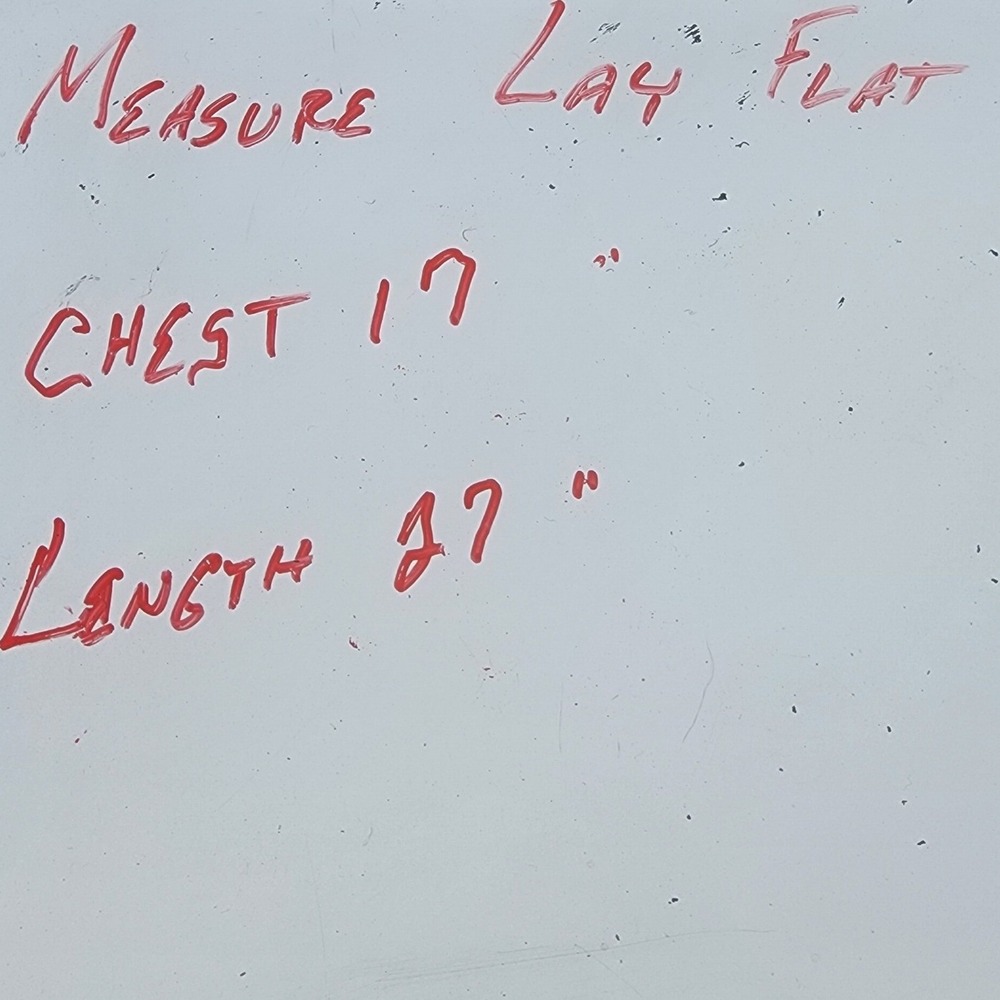 MEASURE LAY FLAT
CHEST 17 "
LENGTH 27 "